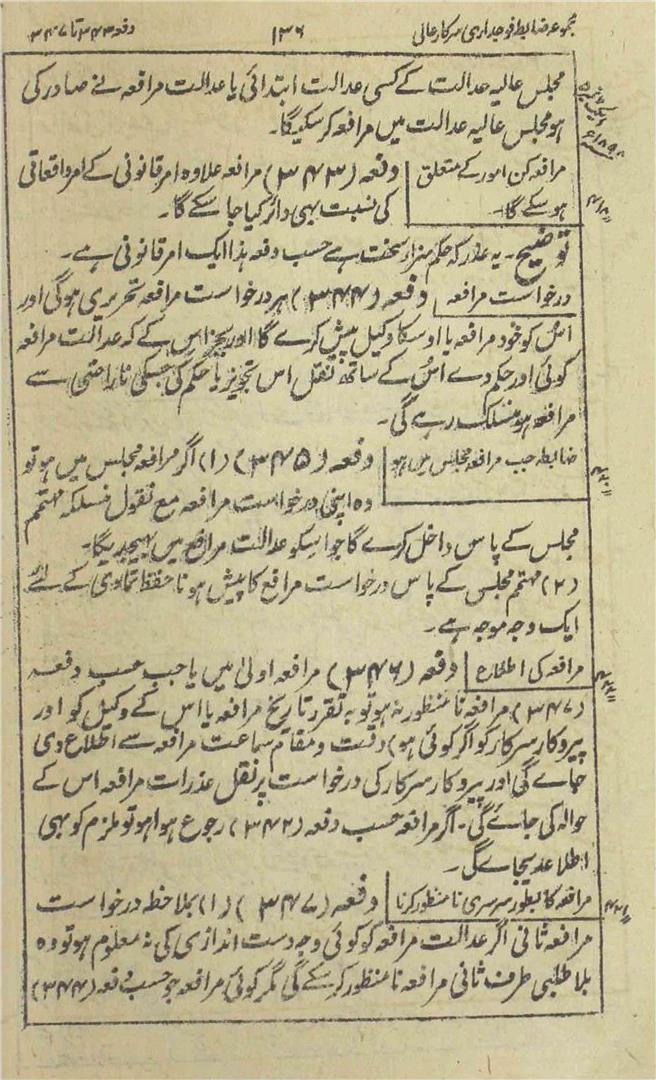 مجموعہ ضابطہ فوجداری سرکار عالی
۱۳۶
دفعہ ۳۴۳ تا ۳۴۷
مجلس عالیہ عدالت کے کسی عدالت ابتدائی یا عدالت مرافعہ نے صادر کی
ہو مجلس عالیہ عدالت میں مرافعہ کر سکیگا۔
مرافعہ کن امور کے متعلق
ہو سکے گا۔
دفعہ (۳۴۳) مرافعہ علاوہ امر قانونی کے امر واقعاتی
کی نسبت بھی دائر کیا جا سکے گا۔
توضیح۔ یہ عذر کہ حکم سزا سخت ہے حسب دفعہ ہذا ایک امر قانونی ہے۔
درخواست مرافعہ
دفعہ (۳۴۴) ہر درخواست مرافعہ تحریری ہوگی اور
اس کو خود مرافعہ یا اوسکا وکیل پیش کرے گا اور بجز اس کے کہ عدالت مرافعہ
کوئی اور حکم دے اُس کے ساتھ نقل اس تجویز یا حکم کی جسکی ناراضی سے
مرافعہ ہو منسلک رہے گی۔
ضابطہ جب مرافعہ مجلس میں ہو
دفعہ (۳۴۵) (۱) اگر مرافعہ مجلس میں ہو تو
وہ اپنی درخواست مرافعہ مع نقول منسلکہ مہتمم
مجلس کے پاس داخل کرے گا جو اسکو عدالت مرافعہ میں بھیجدیگا۔
(۲) مہتمم مجلس کے پاس درخواست مرافع کا پیش ہونا حفظ تمادی کے لئے
ایک وجہ موجہ ہے۔
مرافعہ کی اطلاع
دفعہ (۳۴۶) مرافعہ اولیٰ میں یا جب حسب دفعہ
(۳۴۷) مرافعہ نامنظور نہ ہو تو بہ تقرر تاریخ مرافعہ یا اس کے وکیل کو اور
پیروکار سرکار کو اگر کوئی ہو) وقت و مقام سماعت مرافعہ سے اطلاع دی
جاے گی اور پیروکار سرکار کی درخواست پر نقل عذرات مرافعہ اس کے
حوالہ کی جاے گی۔ اگر مرافعہ حسب دفعہ (۳۴۲) رجوع ہوا ہو تو ملزم کو بھی
اطلاعدیجاے گی۔
مرافعہ کا بطور سرسری نامنظور کرنا
دفعہ (۳۴۷) (۱) بملاحظہ درخواست
مرافعہ ثانی اگر عدالت مرافعہ کو کوئی وجہ دست اندازی کی نہ معلوم ہو تو وہ
بلا طلبی طرف ثانی مرافعہ نامنظور کر سکے گی مگر کوئی مرافعہ جو حسب دفعہ (۳۴۴)